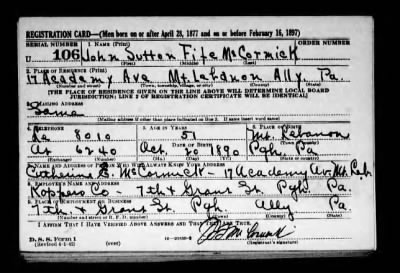 REGISTRATION CARD—(Men born on or after April 28, 1877 and on or before February 16, 1897)
SERIAL NUMBER 1. NAME (Print) ORDER NUMBER
U 106 John Sutton Fife McCormick
(First) (Middle) (Last)
2. PLACE OF RESIDENCE (Print)
17 Academy Ave Mt. Lebanon Ally. Pa.
(Number and street) (Town, township, village, or city) (County) (State)
[THE PLACE OF RESIDENCE GIVEN ON THE LINE ABOVE WILL DETERMINE LOCAL BOARD
JURISDICTION; LINE 2 OF REGISTRATION CERTIFICATE WILL BE IDENTICAL]
3. MAILING ADDRESS
Same
[Mailing address if other than place indicated on line 2. If same insert word same]
4. TELEPHONE 5. AGE IN YEARS 6. PLACE OF BIRTH
Le 8010 51 Mt. Lebanon
DATE OF BIRTH (Town or county)
At 6240 Oct. 30 1890 Pgh. Pa
(Exchange) (Number) (Mo.) (Day) (Yr.) (State or country)
7. NAME AND ADDRESS OF PERSON WHO WILL ALWAYS KNOW YOUR ADDRESS
Catherine E. McCormick - 17 Academy Av. Mt. Leb.
8. EMPLOYER'S NAME AND ADDRESS
Koppers Co - 7th & Grant St. Pgh. Pa.
9. PLACE OF EMPLOYMENT OR BUSINESS
7th & Grant St. Pgh. Ally Pa
(Number and street or R. F. D. number) (Town) (County) (State)
I AFFIRM THAT I HAVE VERIFIED ABOVE ANSWERS AND THAT THEY ARE TRUE.
D. S. S. Form 1
(Revised 4-1-42) (over)
McCormick
(Registrant's signature)